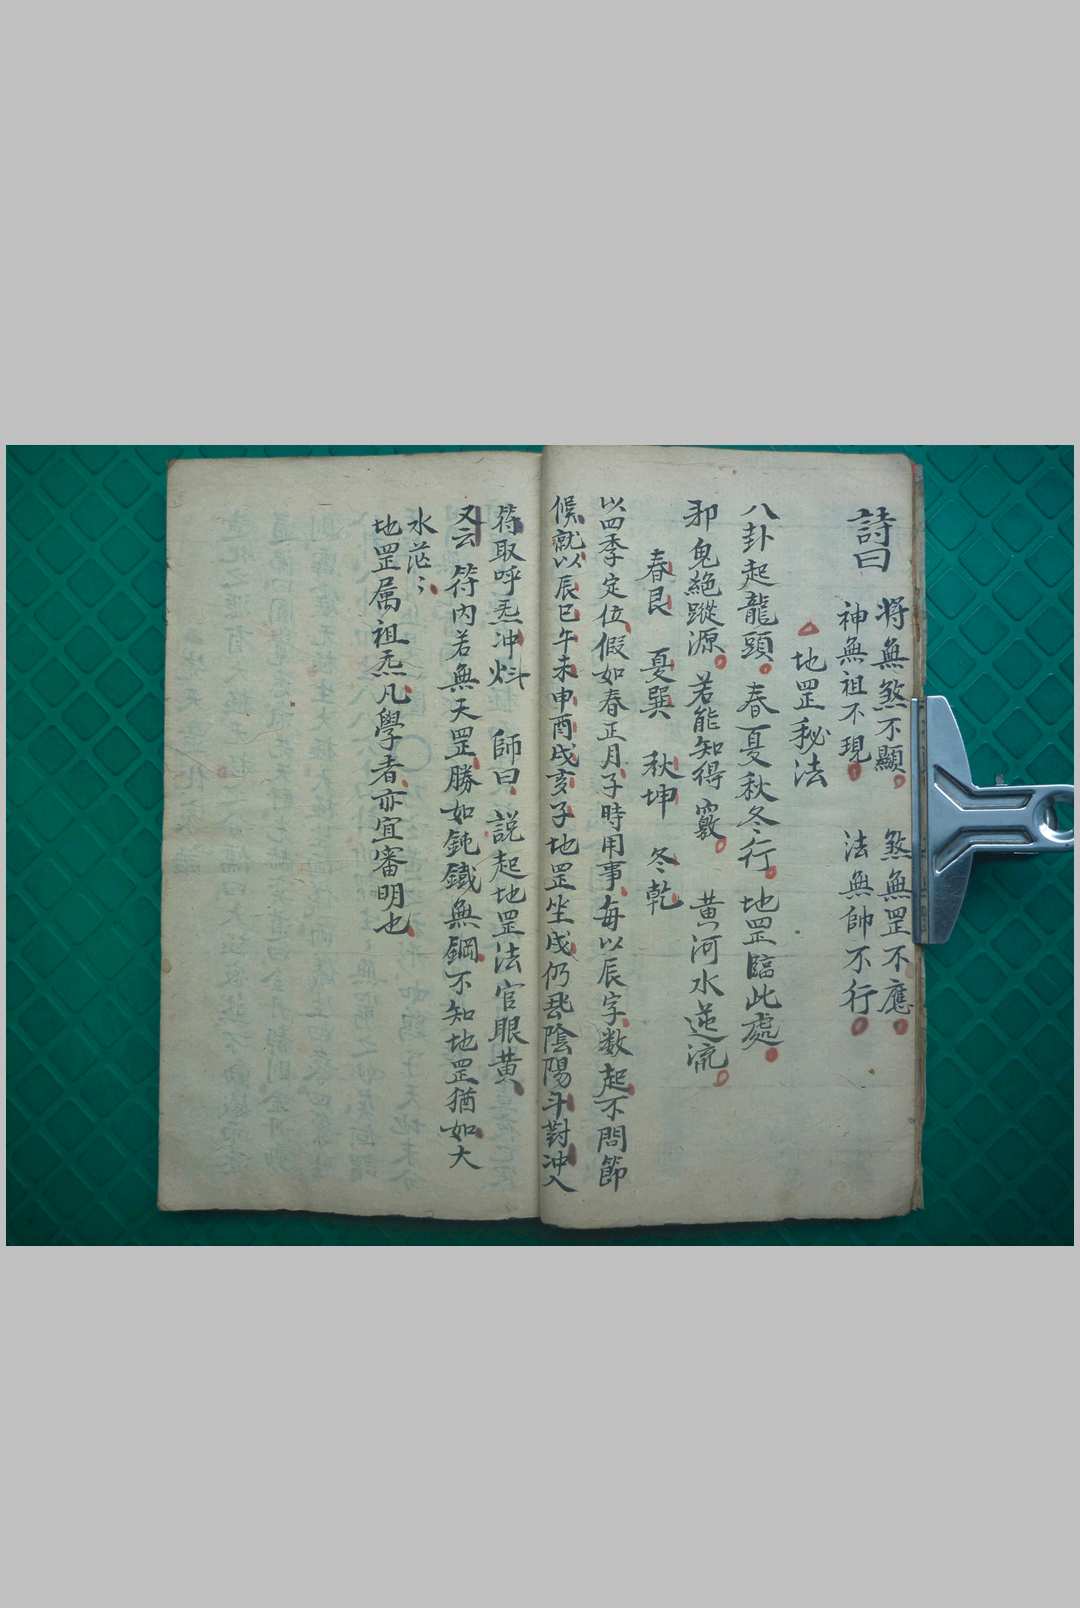 詩曰
將無煞不顯 煞無罡不應
神無祖不現 法無帥不行
地罡秘法
八卦起龍頭 春夏秋冬行 地罡臨此處
邪鬼絕蹤源 若能知得竅 黃河水逆流
春艮 夏巽 秋坤 冬乾
以四季定位假如春正月子時用事每以辰字数起不問節
候就以辰巳午未申酉戌亥子地罡坐戌仍飛陰陽斗對冲入
符取呼炁冲炓 師曰說起地罡法官眼黃
又云符內若無天罡勝如鈍鐵無鋼不知地罡猶如大
水茫〻
地罡属祖炁凡學者亦宜審明也